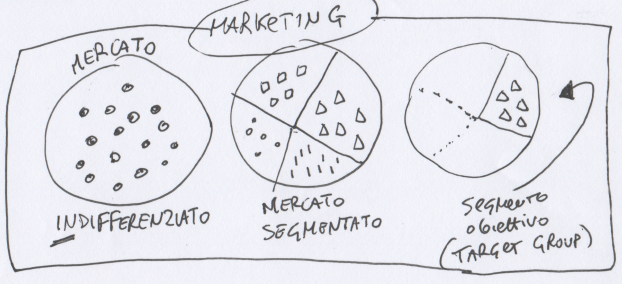 MARKETING
MERCATO
INDIFFERENZIATO
MERCATO
SEGMENTATO
SEGMENTO
obiettivo
(TARGET GROUP)